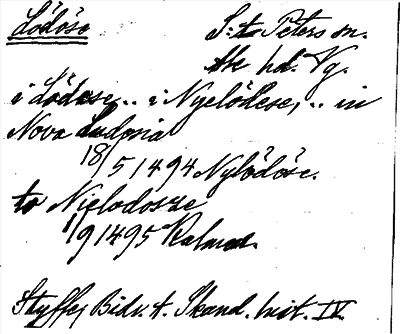 Lödöse S:t Peters sn.
Ale hd. Vg.
i Lödese, .. i Nyelödese, .. in
Nova Ludosia
18/5 1494 Nylödöse.
to Nielodosze
1/9 1495 Kalmar.
Styffe, Bidr. t. Skand. hist. IV.